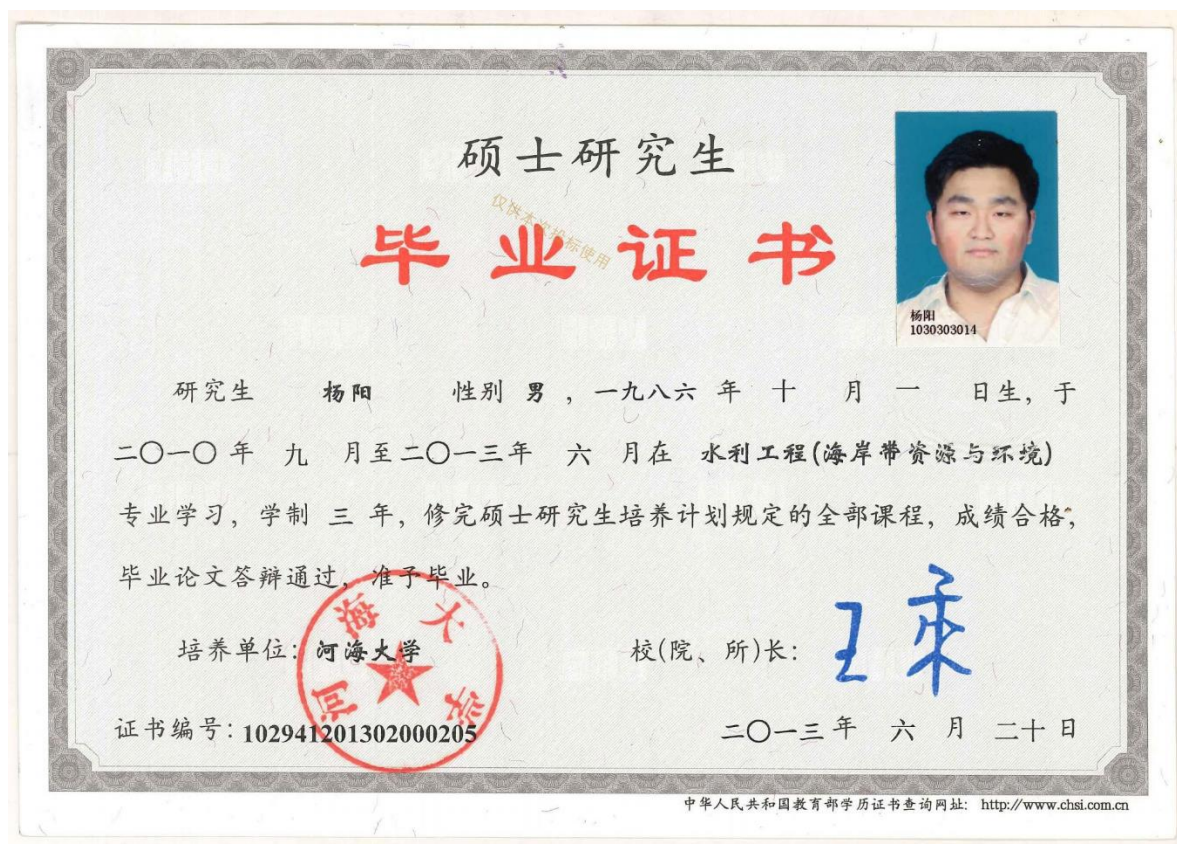 硕士研究生
仅供本次投标使用
毕业证书
杨阳
1030303014
研究生 杨阳 性别 男 ，一九八六 年 十 月 一 日生，于
二〇一〇 年 九 月至二〇一三年 六 月在 水利工程(海岸带资源与环境)
专业学习，学制 三 年，修完硕士研究生培养计划规定的全部课程，成绩合格，
毕业论文答辩通过，准予毕业。
培养单位：河海大学
河海大学
校(院、所)长：
证书编号：102941201302000205
二〇一三年 六 月 二十日
中华人民共和国教育部学历证书查询网址： http://www.chsi.com.cn